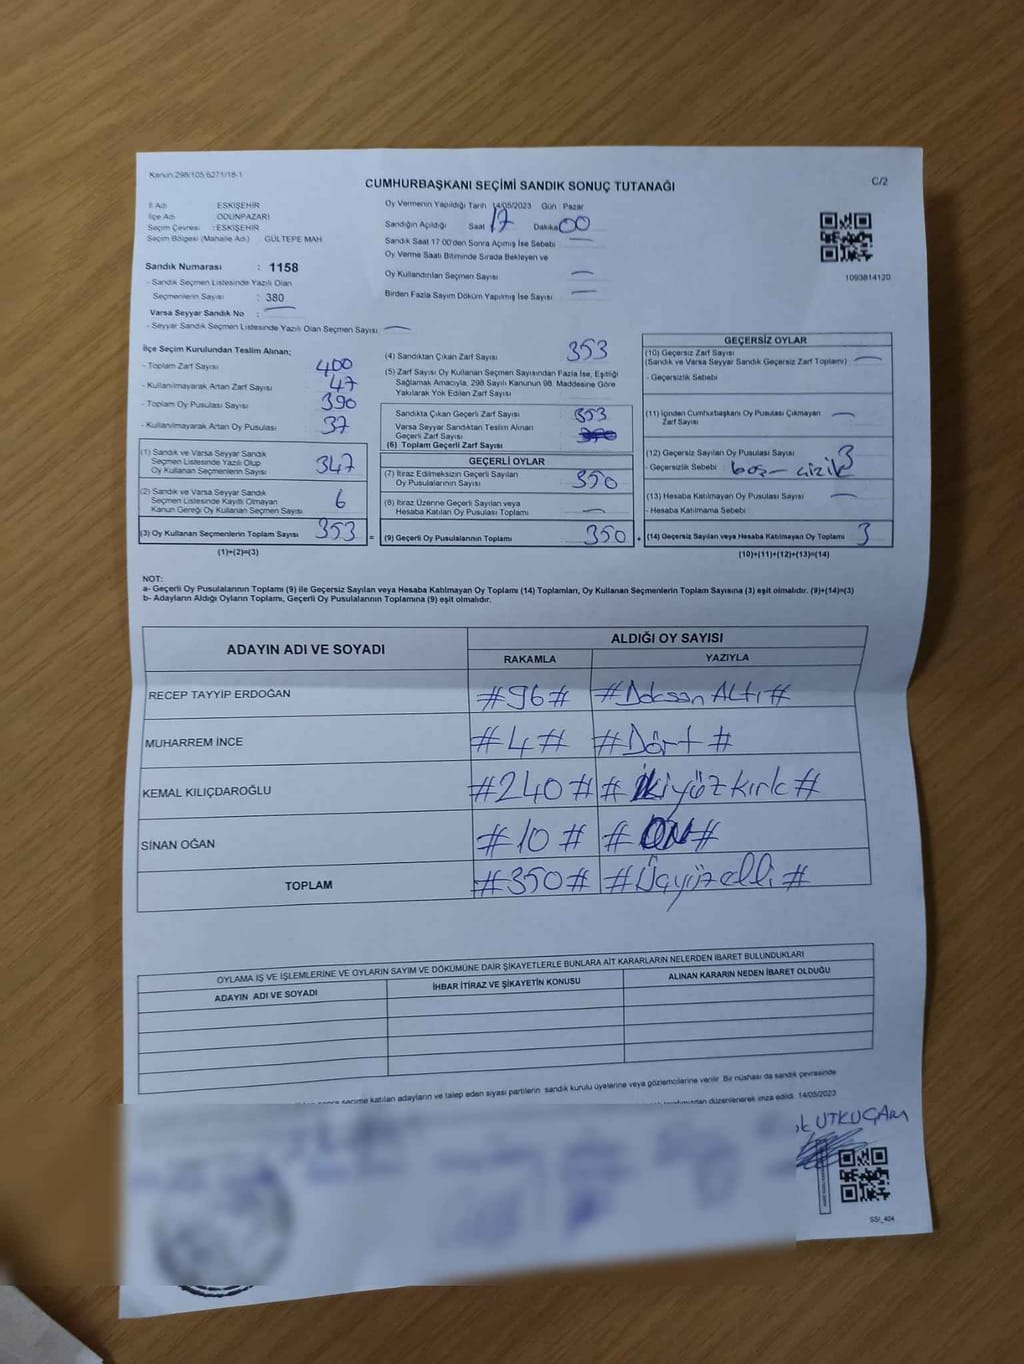 Kanun 298/105,6271/18-1
CUMHURBAŞKANI SEÇİMİ SANDIK SONUÇ TUTANAĞI
C/2
İl Adı ESKİŞEHİR
İlçe Adı ODUNPAZARI
Seçim Çevresi : ESKİŞEHİR
Seçim Bölgesi (Mahalle Adı) GÜLTEPE MAH
Sandık Numarası : 1158
- Sandık Seçmen Listesinde Yazılı Olan
Seçmenlerin Sayısı : 380
Varsa Seyyar Sandık No :
- Seyyar Sandık Seçmen Listesinde Yazılı Olan Seçmen Sayısı
Oy Vermenin Yapıldığı Tarih 14/05/2023 Gün : Pazar
Sandığın Açıldığı Saat 17 Dakika 00
Sandık Saat 17:00'den Sonra Açılmış İse Sebebi
Oy Verme Saati Bitiminde Sırada Bekleyen ve
Oy Kullandırılan Seçmen Sayısı
Birden Fazla Sayım Döküm Yapılmış İse Sayısı
1093814120
İlçe Seçim Kurulundan Teslim Alınan;
- Toplam Zarf Sayısı 400
- Kullanılmayarak Artan Zarf Sayısı 47
- Toplam Oy Pusulası Sayısı 390
- Kullanılmayarak Artan Oy Pusulası 37
(1) Sandık ve Varsa Seyyar Sandık
Seçmen Listesinde Yazılı Olup
Oy Kullanan Seçmenlerin Sayısı 347
(2) Sandık ve Varsa Seyyar Sandık
Seçmen Listesinde Kayıtlı Olmayan
Kanun Gereği Oy Kullanan Seçmen Sayısı 6
(3) Oy Kullanan Seçmenlerin Toplam Sayısı 353 =
(1)+(2)=(3)
(4) Sandıktan Çıkan Zarf Sayısı 353
(5) Zarf Sayısı Oy Kullanan Seçmen Sayısından Fazla İse, Eşitliği
Sağlamak Amacıyla, 298 Sayılı Kanunun 98. Maddesine Göre
Yakılarak Yok Edilen Zarf Sayısı
Sandıkta Çıkan Geçerli Zarf Sayısı 353
Varsa Seyyar Sandıktan Teslim Alınan
Geçerli Zarf Sayısı
(6) Toplam Geçerli Zarf Sayısı
GEÇERLİ OYLAR
(7) İtiraz Edilmeksizin Geçerli Sayılan
Oy Pusulalarının Sayısı 350
(8) İtiraz Üzerine Geçerli Sayılan veya
Hesaba Katılan Oy Pusulası Toplamı
(9) Geçerli Oy Pusulalarının Toplamı 350 +
GEÇERSİZ OYLAR
(10) Geçersiz Zarf Sayısı
(Sandık ve Varsa Seyyar Sandık Geçersiz Zarf Toplamı)
- Geçersizlik Sebebi
(11) İçinden Cumhurbaşkanı Oy Pusulası Çıkmayan
Zarf Sayısı
(12) Geçersiz Sayılan Oy Pusulası Sayısı 3
- Geçersizlik Sebebi : boş - çizik
(13) Hesaba Katılmayan Oy Pusulası Sayısı
- Hesaba Katılmama Sebebi
(14) Geçersiz Sayılan veya Hesaba Katılmayan Oy Toplamı 3
(10)+(11)+(12)+(13)=(14)
NOT:
a- Geçerli Oy Pusulalarının Toplamı (9) ile Geçersiz Sayılan veya Hesaba Katılmayan Oy Toplamı (14) Toplamları, Oy Kullanan Seçmenlerin Toplam Sayısına (3) eşit olmalıdır. (9)+(14)=(3)
b- Adayların Aldığı Oyların Toplamı, Geçerli Oy Pusulalarının Toplamına (9) eşit olmalıdır.
ADAYIN ADI VE SOYADI
ALDIĞI OY SAYISI
RAKAMLA YAZIYLA
RECEP TAYYİP ERDOĞAN #96# #Doksan Altı#
MUHARREM İNCE #4# #Dört#
KEMAL KILIÇDAROĞLU #240# #İkiyüz kırk#
SİNAN OĞAN #10# #ON#
TOPLAM #350# #Üçyüzelli#
OYLAMA İŞ VE İŞLEMLERİNE VE OYLARIN SAYIM VE DÖKÜMÜNE DAİR ŞİKAYETLERLE BUNLARA AİT KARARLARIN NELERDEN İBARET BULUNDUKLARI
ADAYIN ADI VE SOYADI İHBAR İTİRAZ VE ŞİKAYETİN KONUSU ALINAN KARARIN NEDEN İBARET OLDUĞU
seçime katılan adayların ve talep eden siyasi partilerin sandık kurulu üyelerine veya gözlemcilerine verilir. Bir nüshası da sandık çevresinde
düzenlenerek imza edildi. 14/05/2023
UTKUÇAM
SSI_404